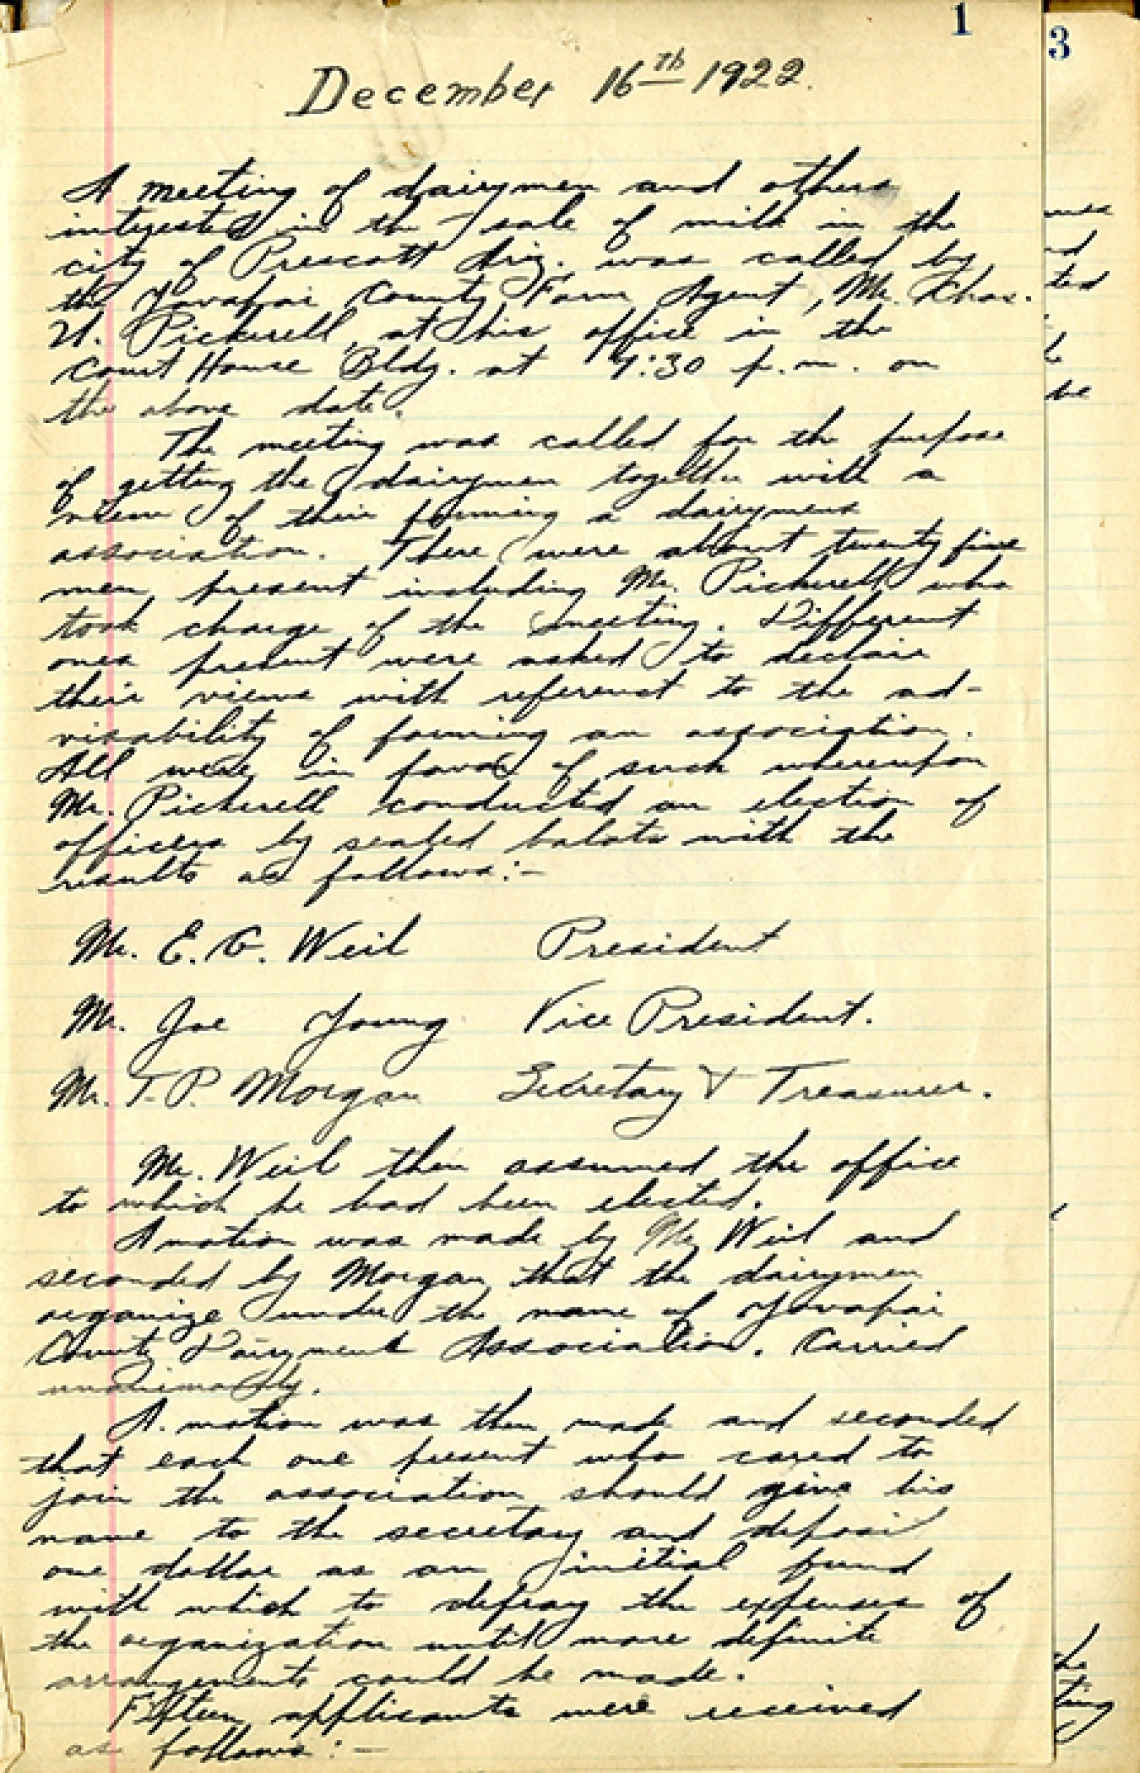 1
3
December 16th 1922.
A meeting of dairymen and others
interested in the sale of milk in the
city of Prescott Ariz. was called by
the Yavapai County Farm Agent, Mr. Chas.
U. Pickrell, at his office in the
Court House Bldg. at 7:30 p.m. on
the above date.
The meeting was called for the purpose
of getting the dairymen together with a
view of their forming a dairymens
association. There were about twenty five
men present including Mr. Pickrell who
took charge of the meeting. Different
ones present were asked to declair
their views with referenct to the ad-
visability of forming an association.
All were in favor of such whereupon
Mr. Pickrell conducted an election of
officers by sealed balots with the
results as follows:-
Mr. E. G. Weil President
Mr. Joe Young Vice President.
Mr. T. P. Morgan Secretary & Treasurer.
Mr. Weil then assumed the office
to which he had been elected.
A motion was made by Mr Weil and
seconded by Morgan that the dairymen
organize under the name of Yavapai
County Dairymens Association. Carried
unanimously.
A motion was then made and seconded
that each one present who cared to
join the association should give his
name to the secretary and deposit
one dollar as an initial fund
with which to defray the expenses of
the organization until more definite
arrangements could be made.
Fifteen applicants were received
as follows:-